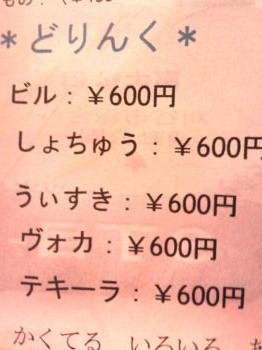 *どりんく*
ビル：￥600円
しょちゅう：￥600円
うぃすき：￥600円
ヴォカ：￥600円
テキーラ：￥600円
かくてる いろいろ